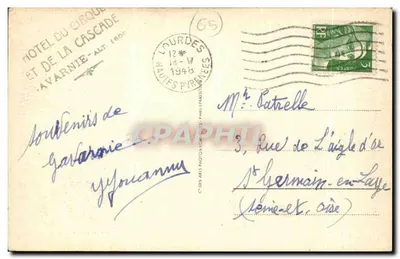 HOTEL DU CIRQUE
ET DE LA CASCADE
GAVARNIE - ALT.
65
LOURDES
12H
14-V
1948
HAUTES PYRENEES
RF
Souvenirs de
Gavarnie
Mr Patrelle
3, Rue de l'Aigle d'or
St Germain-en-Laye
(Seine-et-Oise)